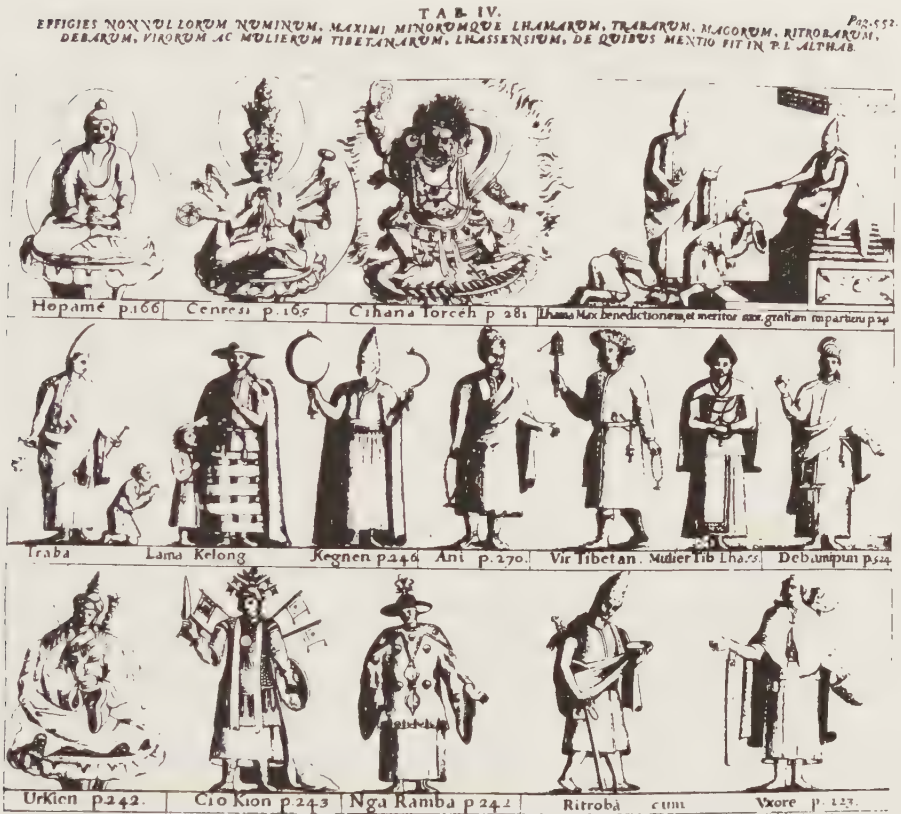 TAB. IV.
Pag. 552.
EFFIGIES NONNULLORUM NUMINUM, MAXIMI MINORUMQUE LHAMARUM, TRABARUM, MAGORUM, RITROBARUM,
DEBARUM, VIRORUM AC MULIERUM TIBETANARUM, LHASSENSIUM, DE QUIBUS MENTIO FIT IN P. I. ALPHAB.
Hopamé p.166 Cenresi p.165 Cihana Torcèh p 281 Lhama Max benedictionem, et meritor suor. gratiam impartiens
Traba Lama Kelong Kegnen p.246 Ani p.270. Vir Tibetan. Mulier Tib Lhass. Debanipun p.524
UrKien p.242. Cio Kion p.243 Nga Ramba p 242 Ritrobà cum Vxore p. 223.